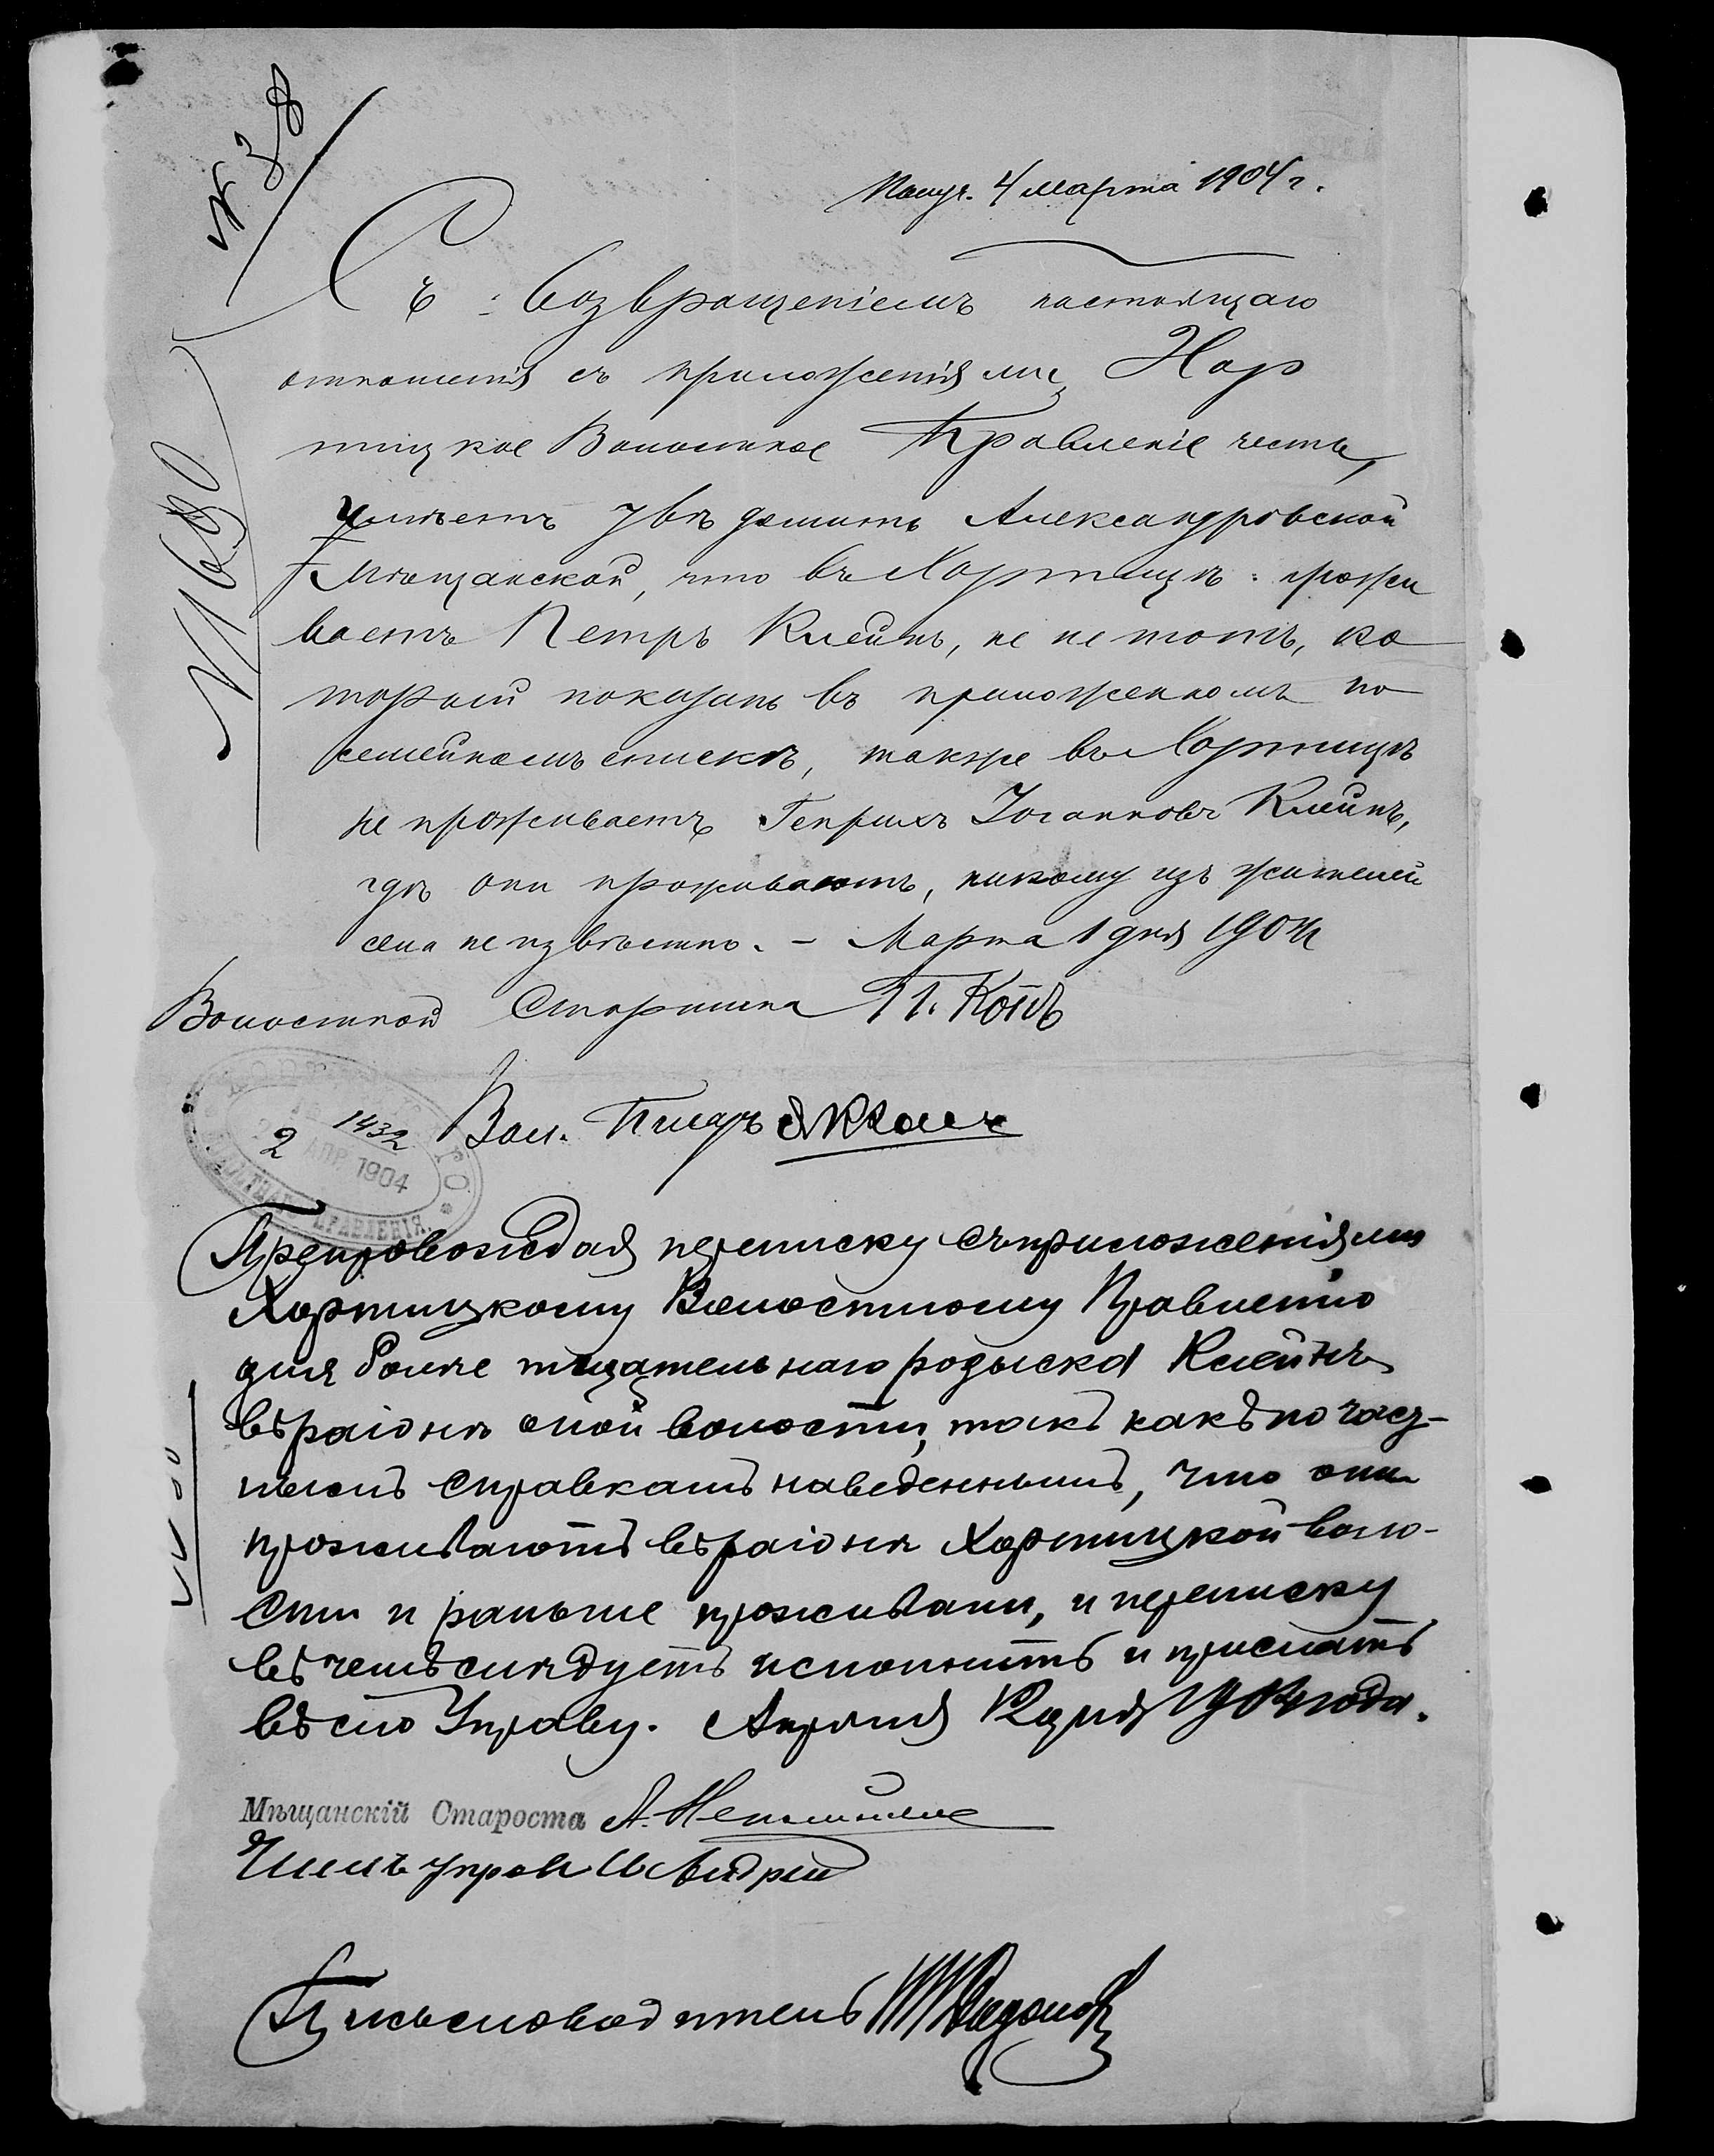 № 38
Получ. 4 марта 1904 г.
Съ возвращеніемъ настоящаго
отношенія съ приложеніями, Хор
тицкое Волостное Правленіе честь
имѣетъ увѣдомить Александровской
Мѣщанской, что въ Хортицѣ прожи
ваетъ Петръ Клейнъ, но не тотъ, ко
торый показанъ въ приложенномъ по
семейномъ спискѣ, также въ Хортицѣ
не проживаетъ Генрихъ Іоганновъ Клейнъ,
гдѣ они проживаютъ, никому изъ жителей
села не извѣстно. – Марта 1 дня 1904
№ 690
Волостной Старшина П. Копъ
Вол. Писарь
1432
2 АПР. 1904
ПРАВЛЕНІЯ
Препровождая переписку съ приложеніями
Хортицкому Волостному Правленію
для болѣе тщательнаго розыска Клейнъ
въ раіонѣ оной волости, такъ какъ по част-
нымъ справкамъ наведеннымъ, что они
проживаютъ въ раіонѣ Хортицкой воло-
сти и раньше проживали, и переписку
въ чемъ слѣдуетъ исполнить и прислать
въ сію Управу. Апрѣля 2 дня 1904 года.
Мѣщанскій Староста А.
Членъ управы
Письмоводитель